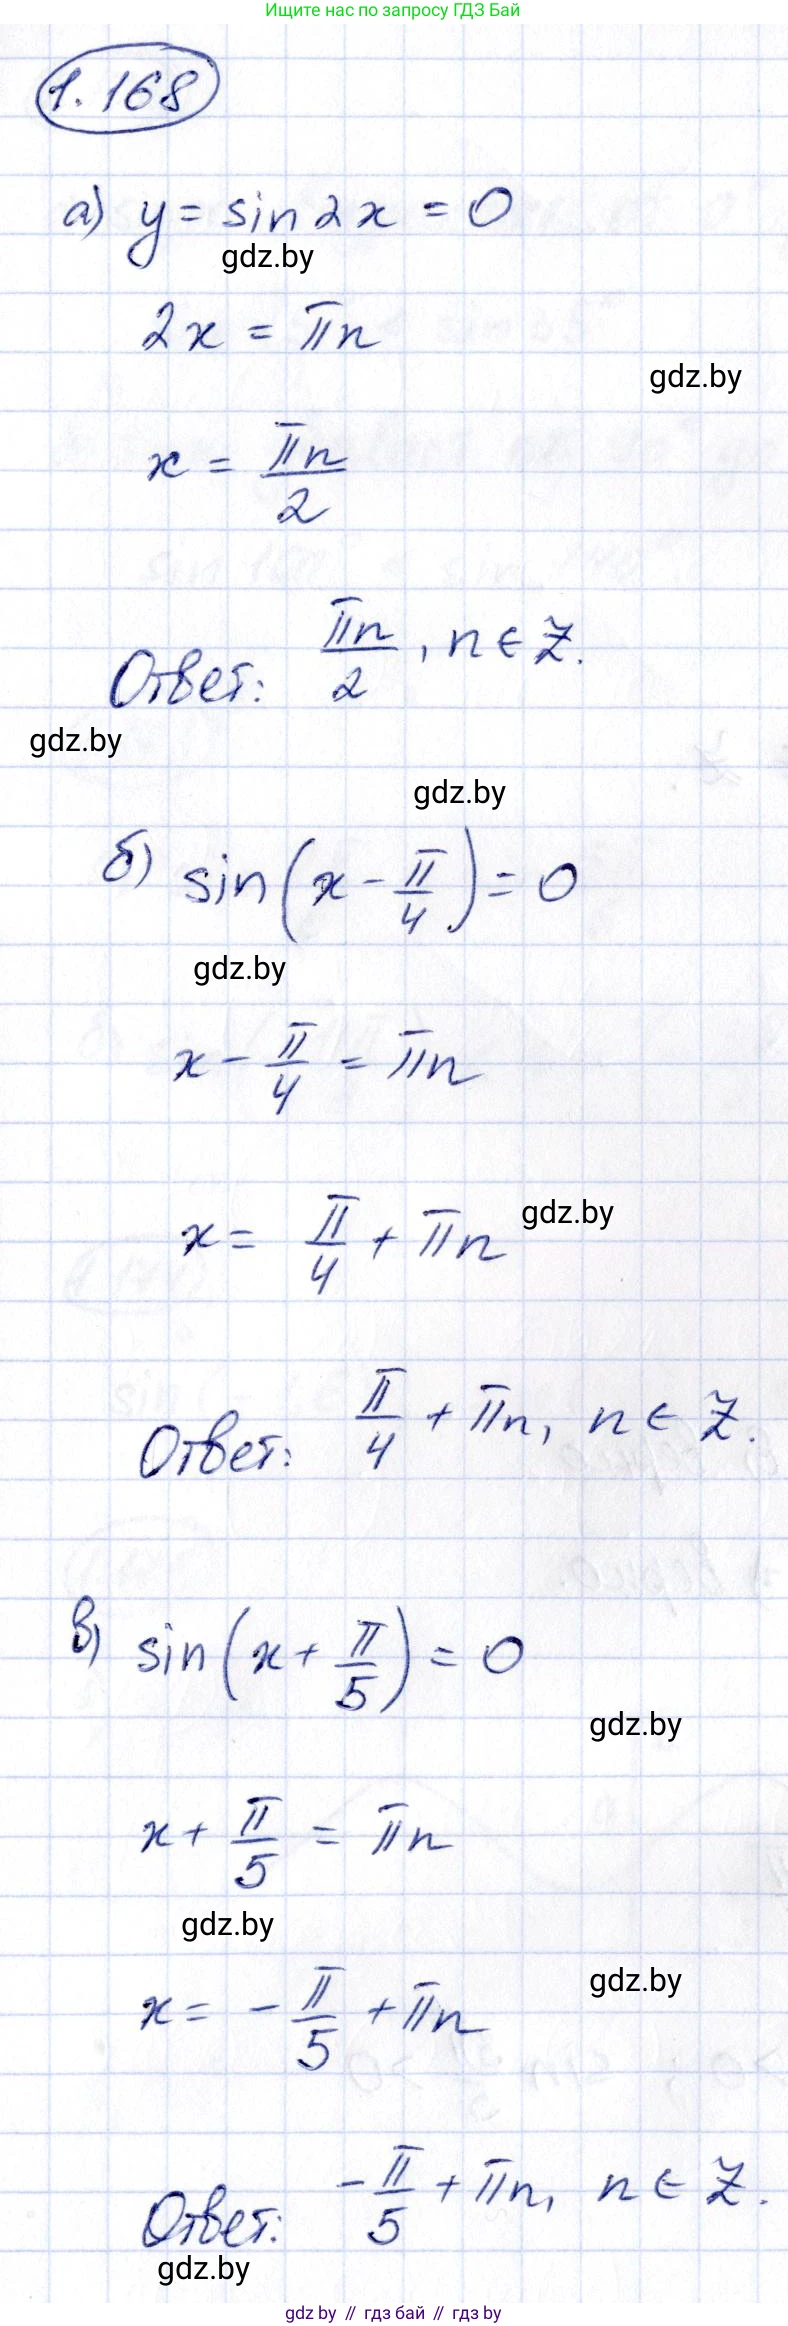 Ищите нас по запросу ГДЗ Бай
1.168
а) y = sin 2x = 0
gdz.by
2x = πn
gdz.by
x = πn/2
Ответ: πn/2, n ∈ Z.
gdz.by
gdz.by
б) sin(x - π/4) = 0
gdz.by
x - π/4 = πn
x = π/4 + πn
gdz.by
Ответ: π/4 + πn, n ∈ Z.
в) sin(x + π/5) = 0
gdz.by
x + π/5 = πn
gdz.by
gdz.by
x = - π/5 + πn
Ответ: - π/5 + πn, n ∈ Z.
gdz.by
gdz.by // гдз бай // gdz by